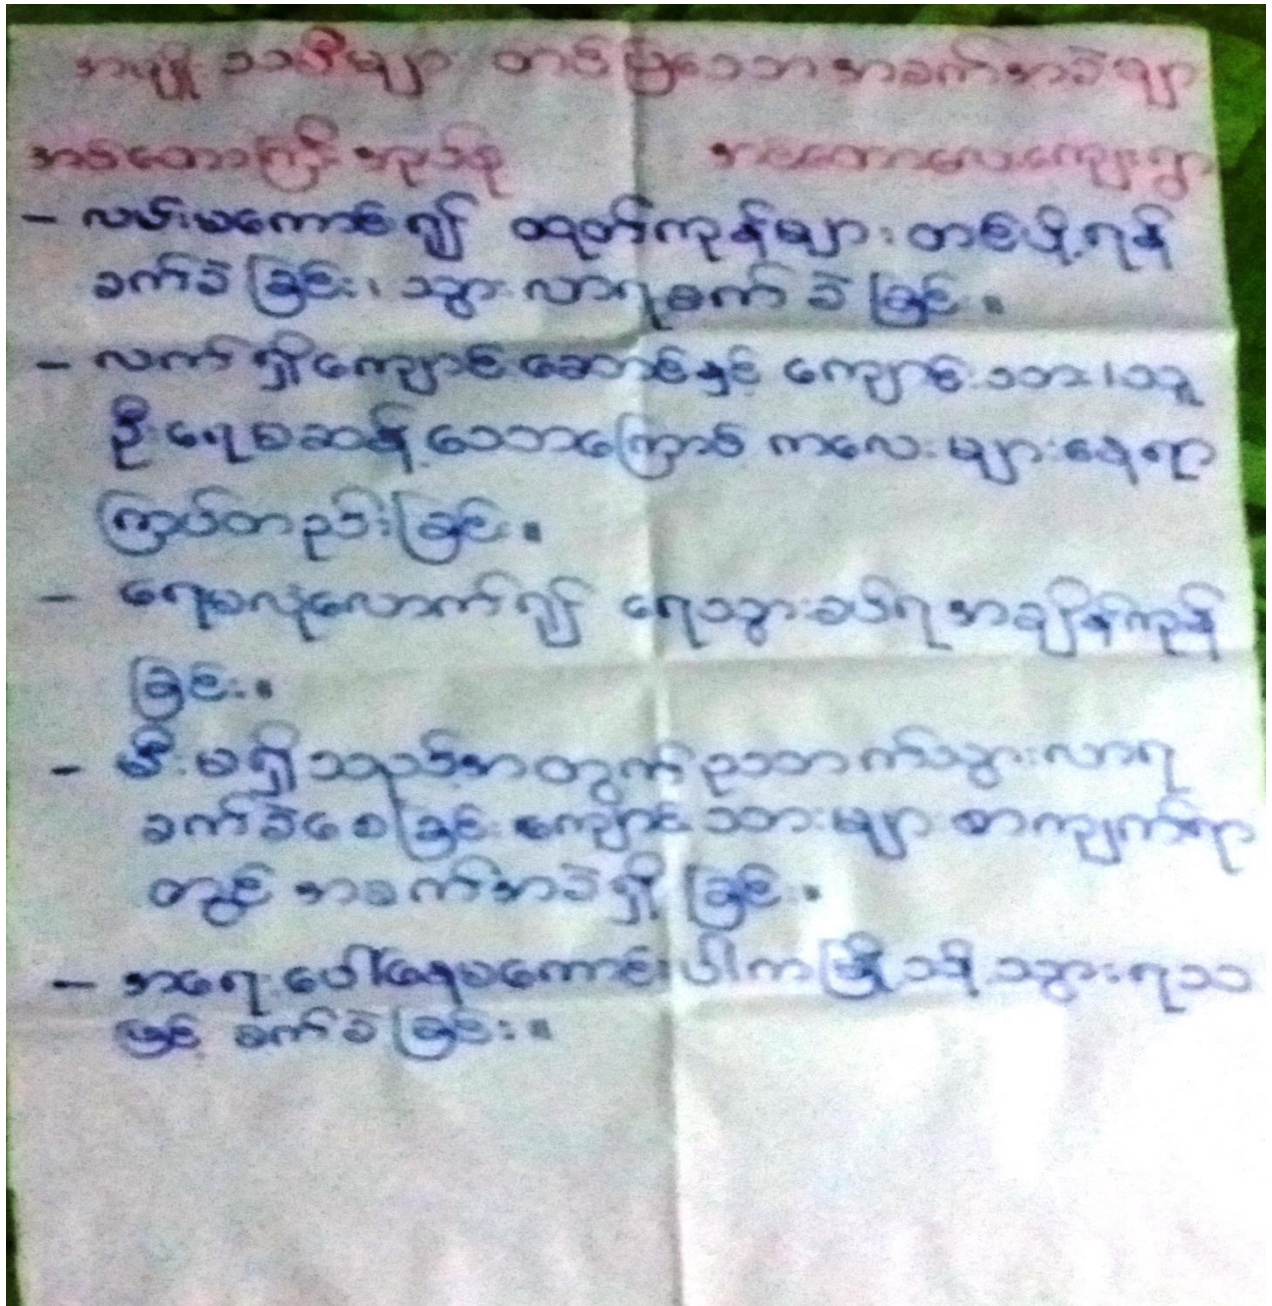 အမျိုးသမီးများ တင်ပြသောအခက်အခဲများ
အင်တောကြီး အုပ်စု အင်တောလေးကျေးရွာ
- လမ်းမကောင်း၍ ထုတ်ကုန်များ တင်ပို့ရန်
ခက်ခဲခြင်း၊ သွားလာရခက်ခဲခြင်း။
- လက်ရှိကျောင်းဆောင်နှင့် ကျောင်းသား၊သူ
ဦးရေမဆန့်သောကြောင့် ကလေးများနေရာ
ကြပ်တည်းခြင်း။
- ရေမလုံလောက်၍ ရေသွားခပ်ရအချိန်ကုန်
ခြင်း။
- မီးမရှိသည့်အတွက်ညဘက်သွားလာရ
ခက်ခဲစေခြင်း ကျောင်းသားများ စာကျက်ရာ
တွင် အခက်အခဲရှိခြင်း။
- အရေးပေါ်နေမကောင်းပါကမြို့သို့သွားရသ
ဖြင့် ခက်ခဲခြင်း။